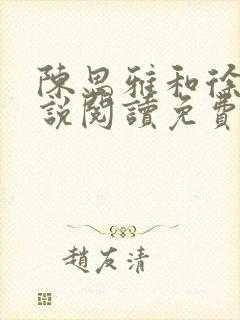 陳思雅和徐
說閱讀免費
趙友清